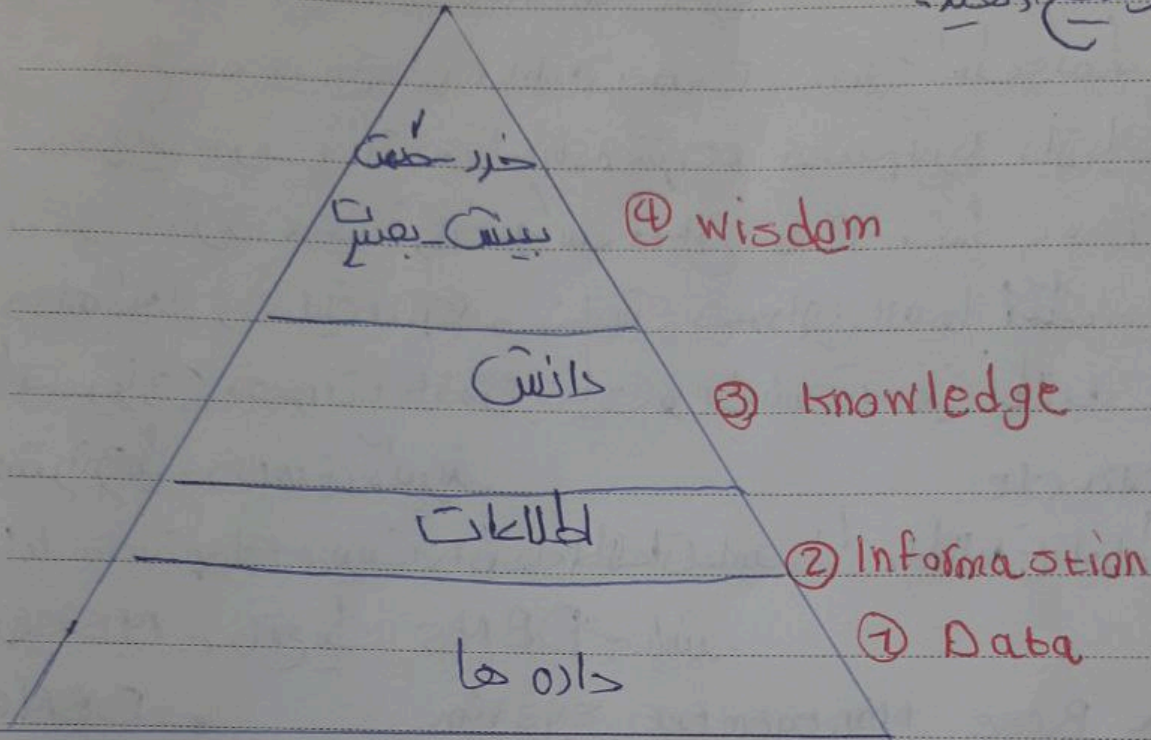 خرد - حکمت
بینش - بصیرت
④ Wisdom
دانش
③ Knowledge
اطلاعات
② Informastion
① Data
داده ها